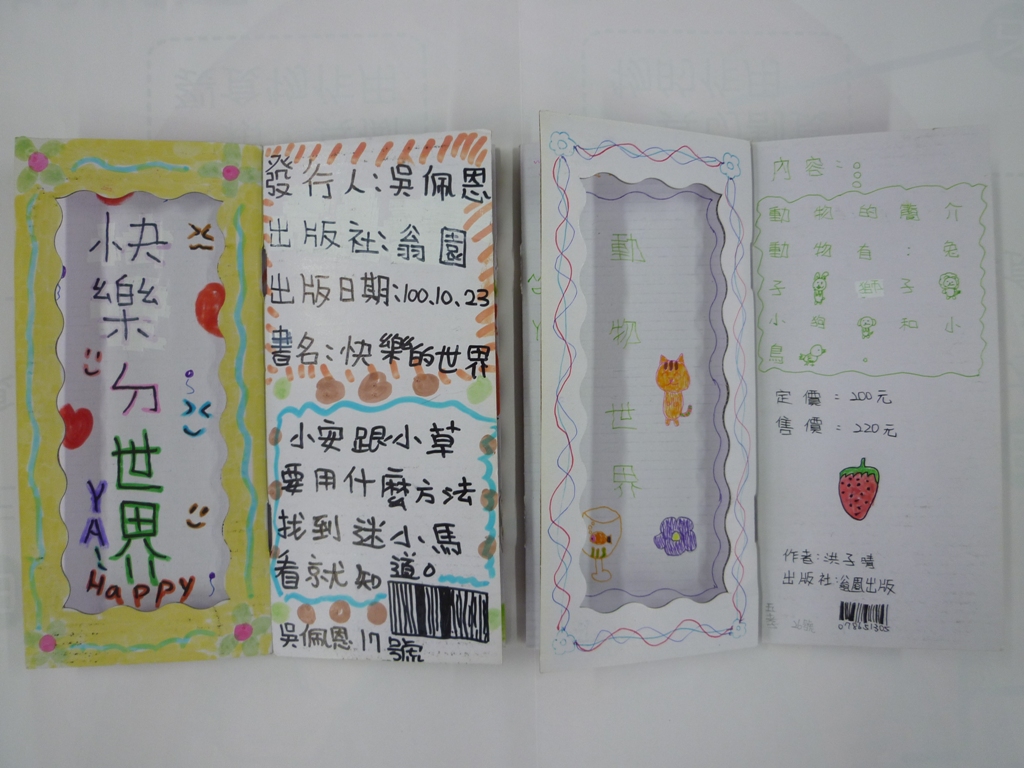 快樂ㄉ世界
YA~
Happy
發行人:吳佩恩
出版社:翁園
出版日期:100.10.23
書名:快樂的世界
小安跟小草
要用什麼方法
找到迷小馬
看就知道。
吳佩恩17號
動物世界
內容:
動物的簡介
動物有:兔
子 獅子
小狗 和小
鳥 。
定價=200元
售價=220元
作者:洪子晴
出版社:翁園出版